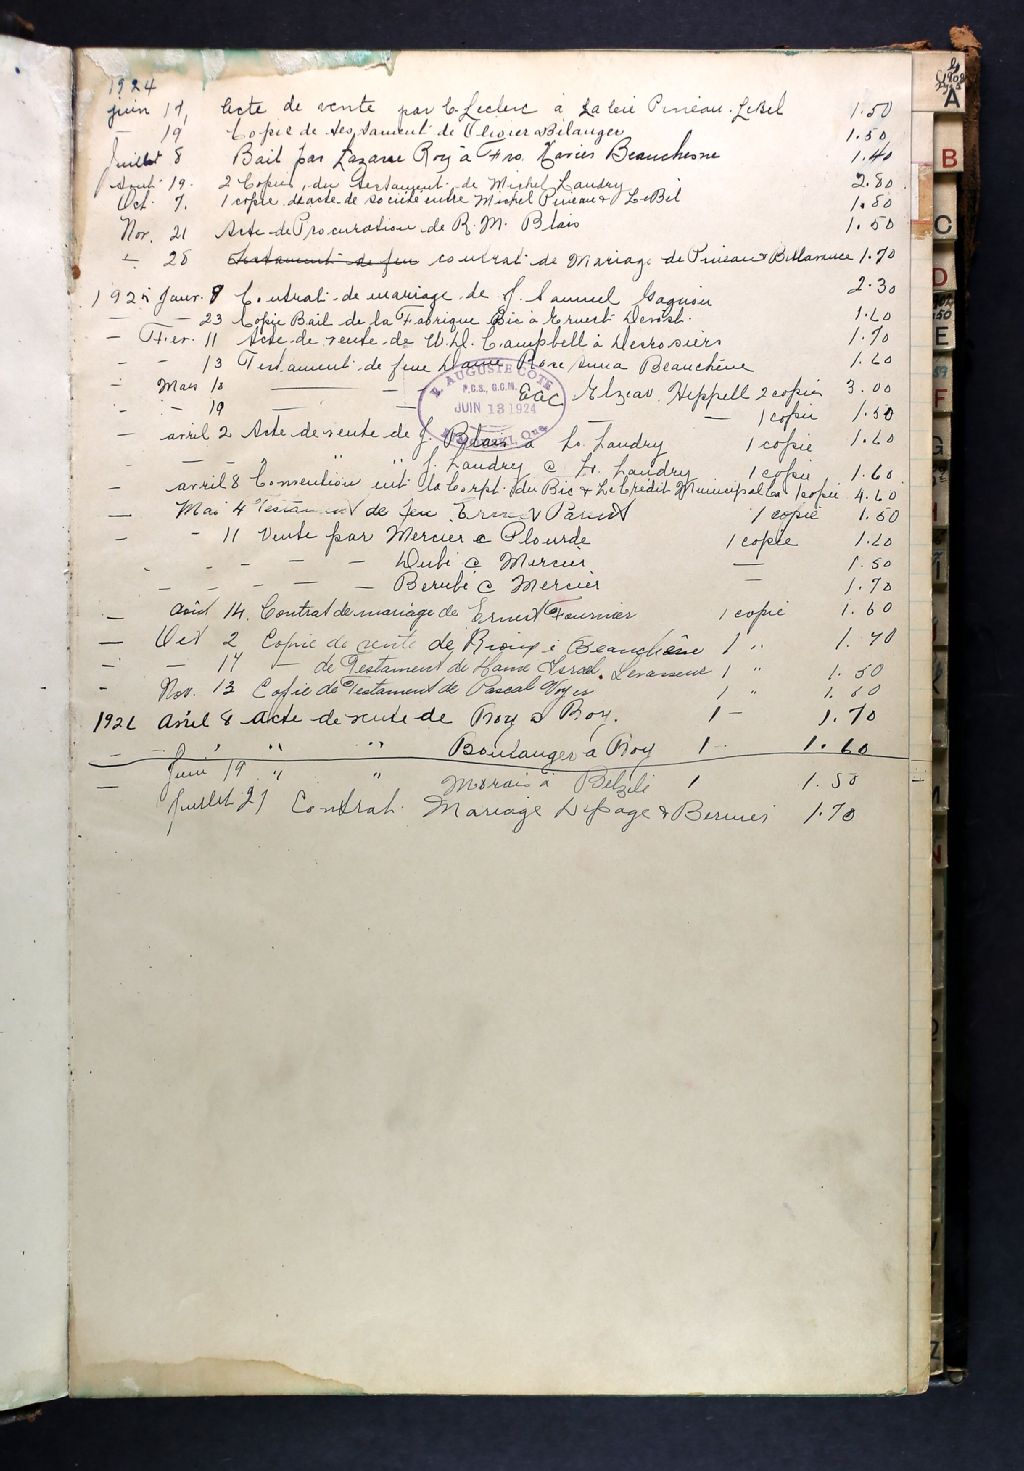 1924
juin 17, Acte de vente par C. Leclerc à Pineau. LeBel 1.50
— 19 Copie de testament de Olivier Bélanger 1.50
Juillet 8 Bail par Lazarre Roy à Frs. Xavier Beauchesne 1.40
Août 19. 2 Copies du testament de Michel Landry 2.80
Oct. 7. 1 copie d'acte de société entre Michel Pineau & LeBel 1.50
Nov. 21 Acte de Procuration de R. M. Blais 1.50
" 28 Testament de feu contrat de Mariage de Pineau & Bellavance 1.70
1925 Janv. 8 Contrat de mariage de J. Samuel Gagnon 2.30
— — 23 Copie Bail de la Fabrique Bic à Ernest 1.60
— Fev. 11 Acte de vente de W. D. Campbell à Desrosiers 1.70
- - 13 Testament de feue Dame Rose Anna Beauchêne 1.60
" Mars 10 — — EAC Elzear Heppell 2 copies 3.00
- - 19 — — — 1 copie 1.50
— avril 2 Acte de vente de J. Blais à L. Landry 1 copie 1.60
— — — " " J. Landry à L. Landry 1 copie 1.60
— avril 8 Convention ent la Corpt. du Bic & Le Crédit Municipal 1 copie 4.60
— Mai 4 Testament de feu Ernest Parent 1 copie 1.50
- - 11 Vente par Mercier à Plourde 1 copie 1.60
- - - - - — Dubé à Mercier — 1.50
- - - - — Berubé à Mercier — 1.70
— Août 14. Contrat de mariage de Ernest Fournier 1 copie 1.60
— Oct 2 Copie de vente de Rioux à Beauchêne 1 " 1.70
- — 17 — de Testament de Israel Levasseur 1 " 1.50
- Nov. 13 Copie de Testament de Pascal Voyer 1 " 1.60
1926 Avril 8 Acte de vente de Roy à Roy. 1 — 1.70
— " " " Boulanger à Roy 1 -- 1.60
— Juin 19 " " Morais à Belzile 1 1.50
Juillet 21 Contrat Mariage Lepage & Bernier 1.70
E. AUGUSTE COTE
P.C.S., G.C.M.
JUIN 18 1924
A
B
C
D
E
F
G
M
N
Z